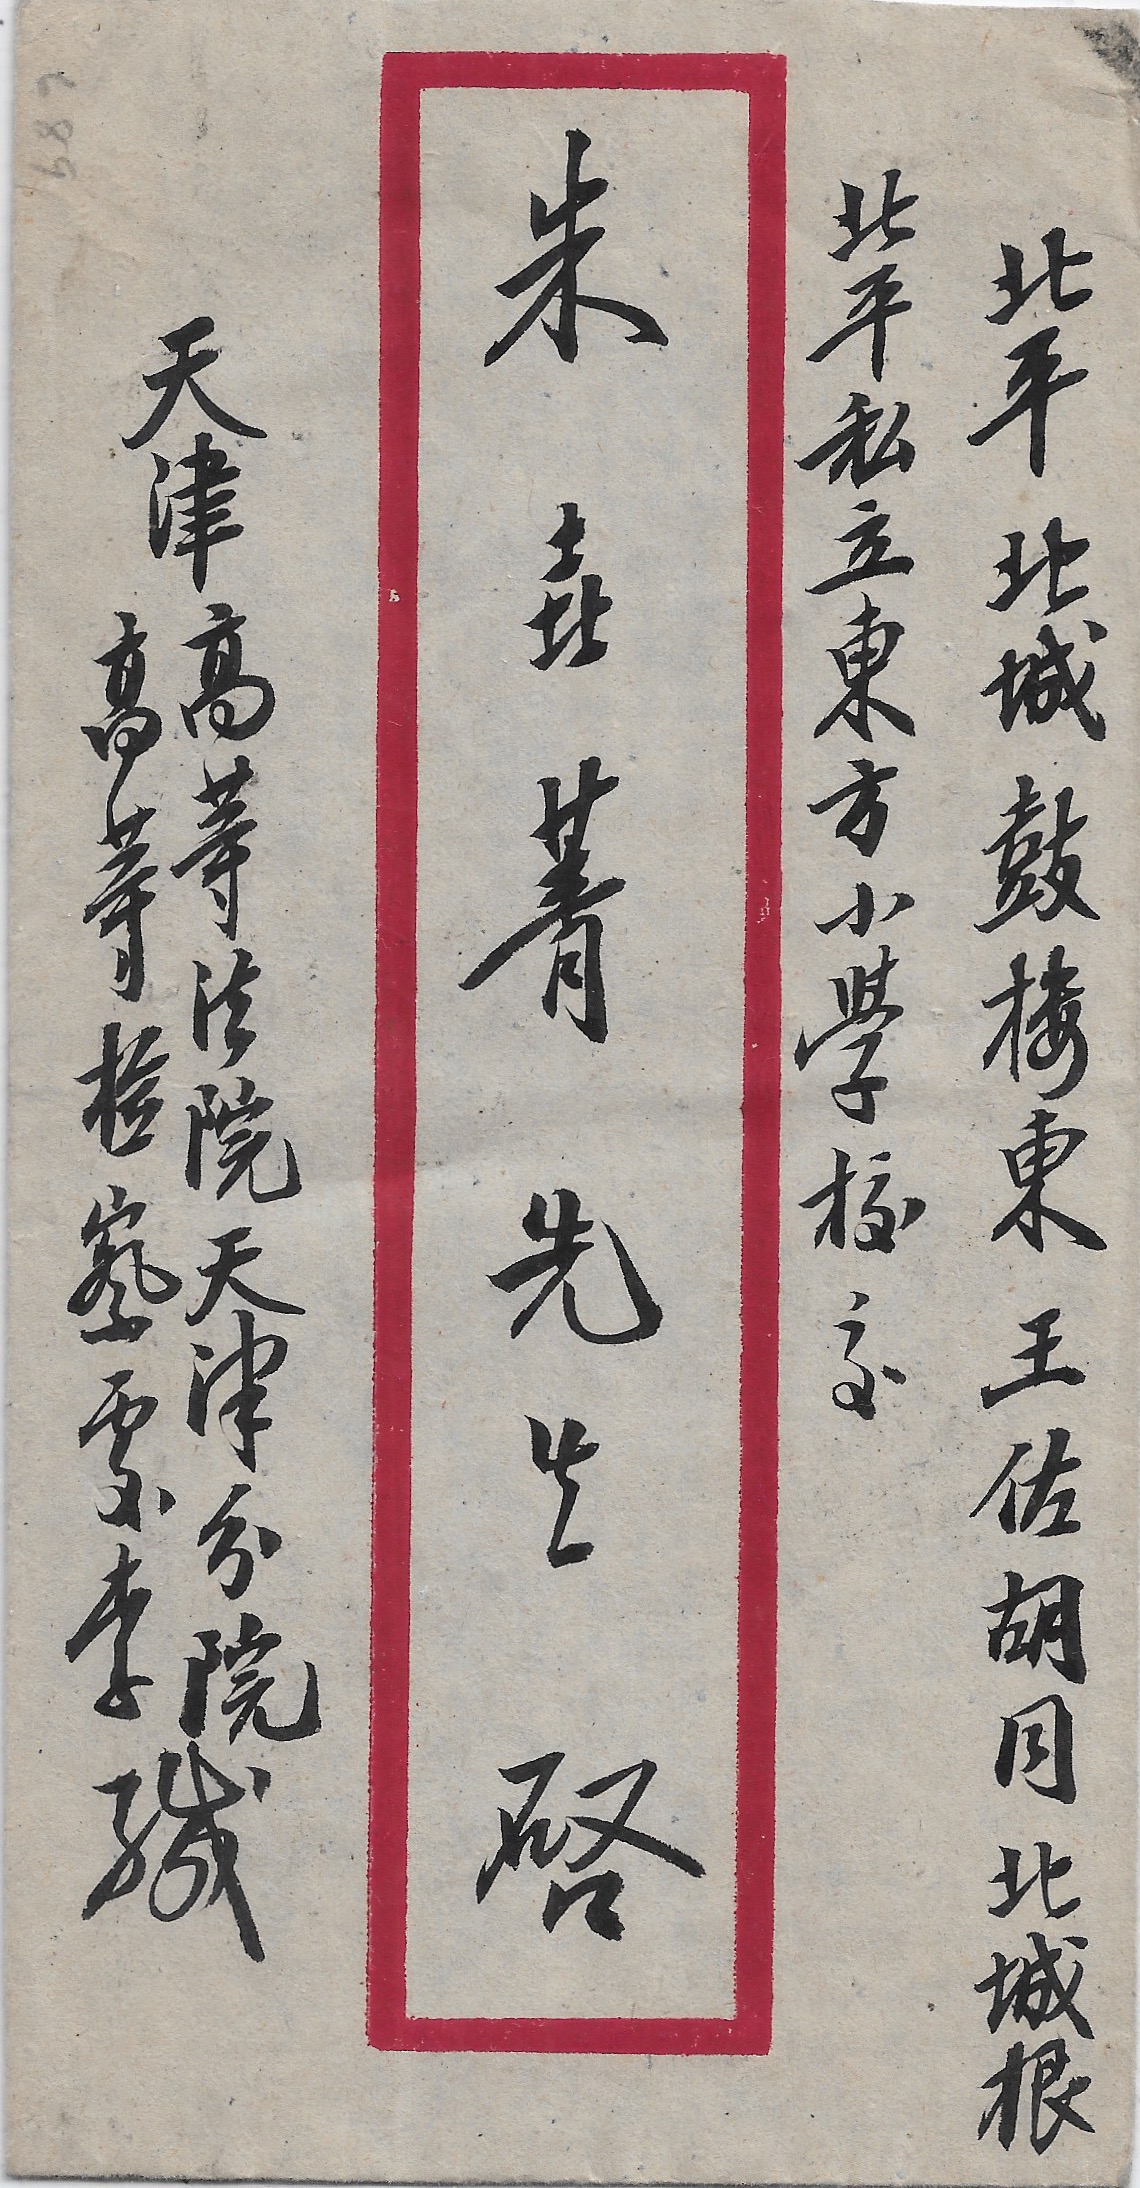 北平北城鼓樓東王佐胡同北城根
北平私立東方小學校交
朱垚菁先生啓
天津高等法院天津分院
高等檢察處李緘